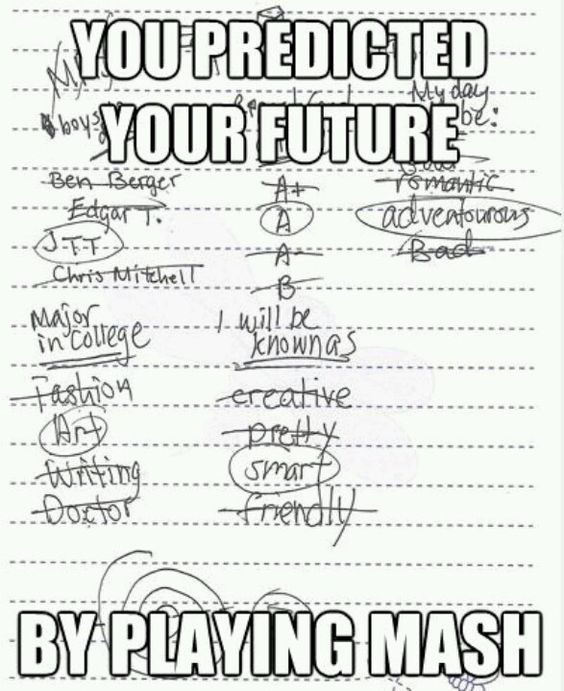 YOU PREDICTED
YOUR FUTURE
My day
boys
be:
Ben Berger
Edgar T.
JTT
Chris Mitchell
A+
A
A-
B
romantic
adventourous
Bad
Major
in College
Fashion
Art
Writing
Doctor
I will be
known as
creative
pretty
smart
friendly
BY PLAYING MASH